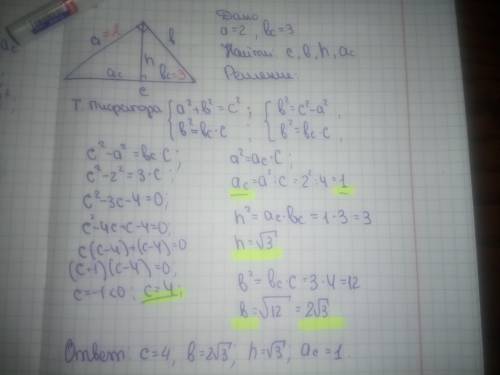 Дано
a=2, b_c=3
Найти: c, b, h, a_c
Решение:
a=2
b
h
a_c
b_c=3
c
Т. Пифагора { a²+b²=c²; b²=b_c·c ; { b²=c²-a², b²=b_c·c,
c²-a²=b_c·c;
c²-2²=3·c;
c²-3c-4=0;
c²-4c+c-4=0;
c(c-4)+(c-4)=0
(c+1)(c-4)=0;
c=-1<0; c=4;
a²=a_c·c;
a_c=a²:c=2²:4=1
h²=a_c·b_c=1·3=3
h=√3
b²=b_c·c=3·4=12
b=√12=2√3
Ответ: c=4, b=2√3; h=√3; a_c=1.